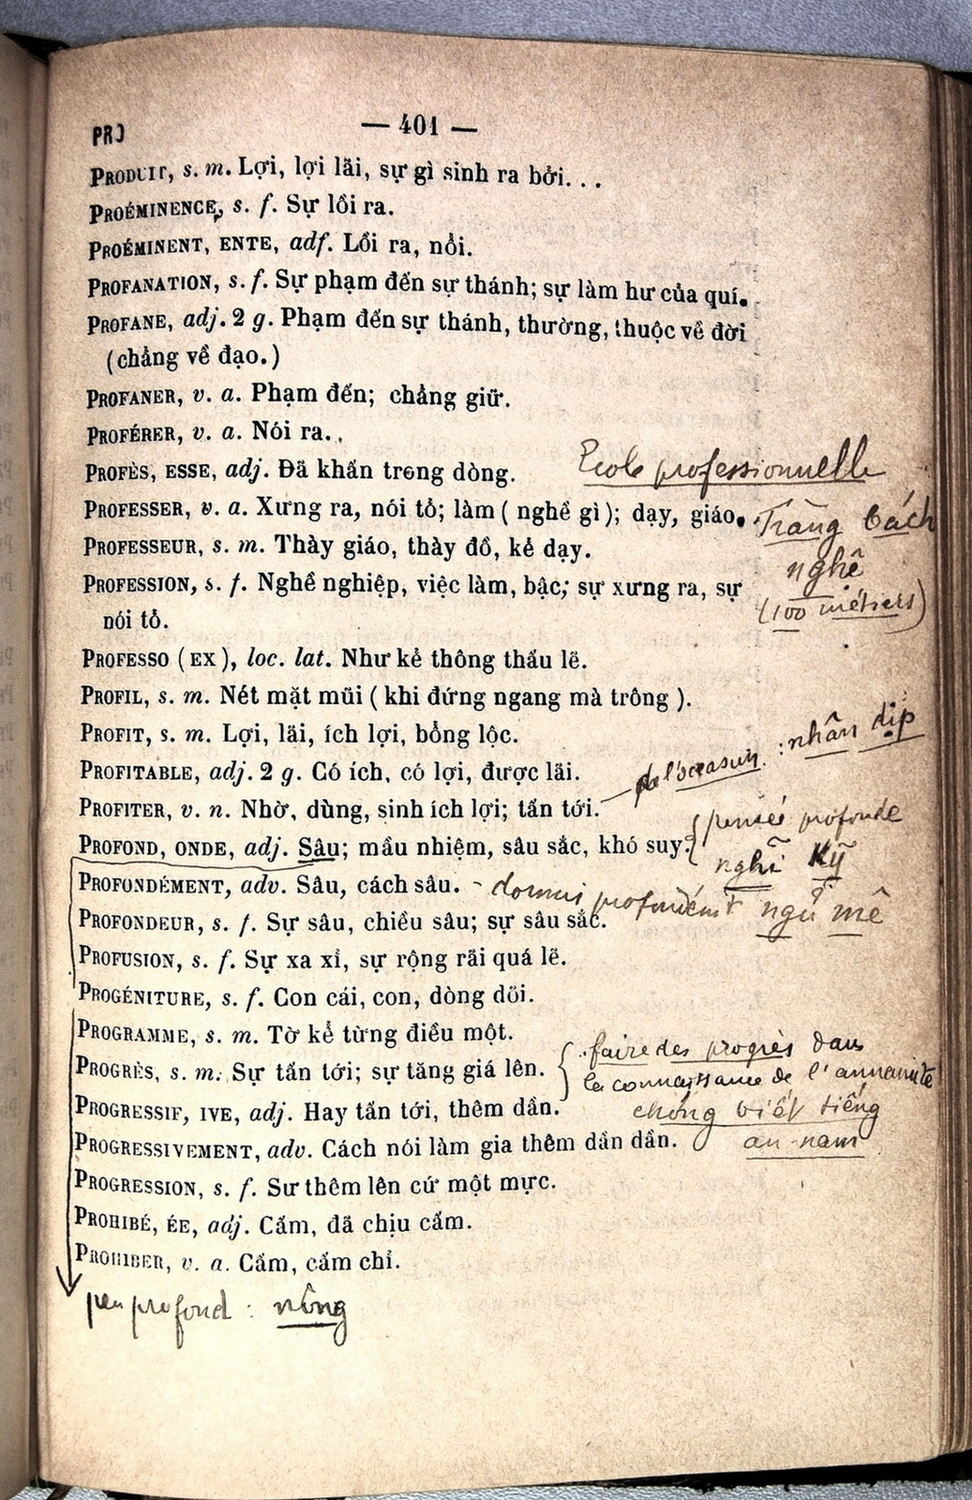 PRO
— 401 —
PRODUIT, s. m. Lợi, lợi lãi, sự gì sinh ra bởi. . .
PROÉMINENCE, s. f. Sự lồi ra.
PROÉMINENT, ENTE, adf. Lồi ra, nổi.
PROFANATION, s. f. Sự phạm đến sự thánh; sự làm hư của quí.
PROFANE, adj. 2 g. Phạm đến sự thánh, thường, thuộc về đời
(chẳng về đạo.)
PROFANER, v. a. Phạm đến; chẳng giữ.
PROFÉRER, v. a. Nói ra.
PROFÈS, ESSE, adj. Đã khấn trong dòng.
Ecole professionnelle
PROFESSER, v. a. Xưng ra, nói tỏ; làm ( nghề gì ); dạy, giáo.
Tràng bách
PROFESSEUR, s. m. Thày giáo, thày đồ, kẻ dạy.
nghệ
PROFESSION, s. f. Nghề nghiệp, việc làm, bậc; sự xưng ra, sự
(100 métiers)
nói tỏ.
PROFESSO ( EX ), loc. lat. Như kẻ thông thấu lẽ.
PROFIL, s. m. Nét mặt mũi ( khi đứng ngang mà trông ).
PROFIT, s. m. Lợi, lãi, ích lợi, bổng lộc.
PROFITABLE, adj. 2 g. Có ích, có lợi, được lãi.
de l'occasion : nhân dịp
PROFITER, v. n. Nhờ, dùng, sinh ích lợi; tấn tới.
PROFOND, ONDE, adj. Sâu; mầu nhiệm, sâu sắc, khó suy.
pensée profonde
nghĩ Kỹ
PROFONDÉMENT, adv. Sâu, cách sâu.
- dormir profondément ngủ mê
PROFONDEUR, s. f. Sự sâu, chiều sâu; sự sâu sắc.
PROFUSION, s. f. Sự xa xỉ, sự rộng rãi quá lẽ.
PROGÉNITURE, s. f. Con cái, con, dòng dõi.
PROGRAMME, s. m. Tờ kể từng điều một.
PROGRÈS, s. m. Sự tấn tới; sự tăng giá lên.
faire des progrès dans
la connaissance de l'annamite
PROGRESSIF, IVE, adj. Hay tấn tới, thêm dần.
chóng biết tiếng
an-nam
PROGRESSIVEMENT, adv. Cách nói làm gia thêm dần dần.
PROGRESSION, s. f. Sự thêm lên cứ một mực.
PROHIBÉ, ÉE, adj. Cấm, đã chịu cấm.
PROHIBER, v. a. Cấm, cấm chỉ.
peu profond : nông